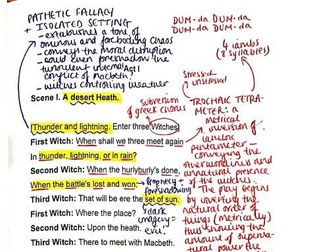 PATHETIC FALLACY
+ ISOLATED SETTING
- establishes a tone of
ominous and foreboding chaos
- conveys the moral disruption
- could even foreshadow the
turbulent internal
conflict of Macbeth?
- witches controlling weather
DUM-da DUM-da
DUM-da DUM-da
4 iambs
(8 syllables)
Stressed-
unstressed
Act 1
Scene I. A desert Heath.
subversion
of greek chorus
TROCHAIC TETRA-
METER: a
metrical
inversion of
iambic
pentameter -
conveying the
and unnatural presence
of the witches.
The play begins
by inverting the
natural order of
things (metrically)
thus showing the
amount of superna-
tural power the
Thunder and lightning. Enter three Witches
First Witch: When shall we three meet again
In thunder, lightning, or in rain?
Second Witch: When the hurlyburly's done,
When the battle's lost and won.
prophecy +
foreshadowing
Third Witch: That will be ere the set of sun.
First Witch: Where the place?
dark
imagery =
evil.
Second Witch: Upon the heath.
Third Witch: There to meet with Macbeth.